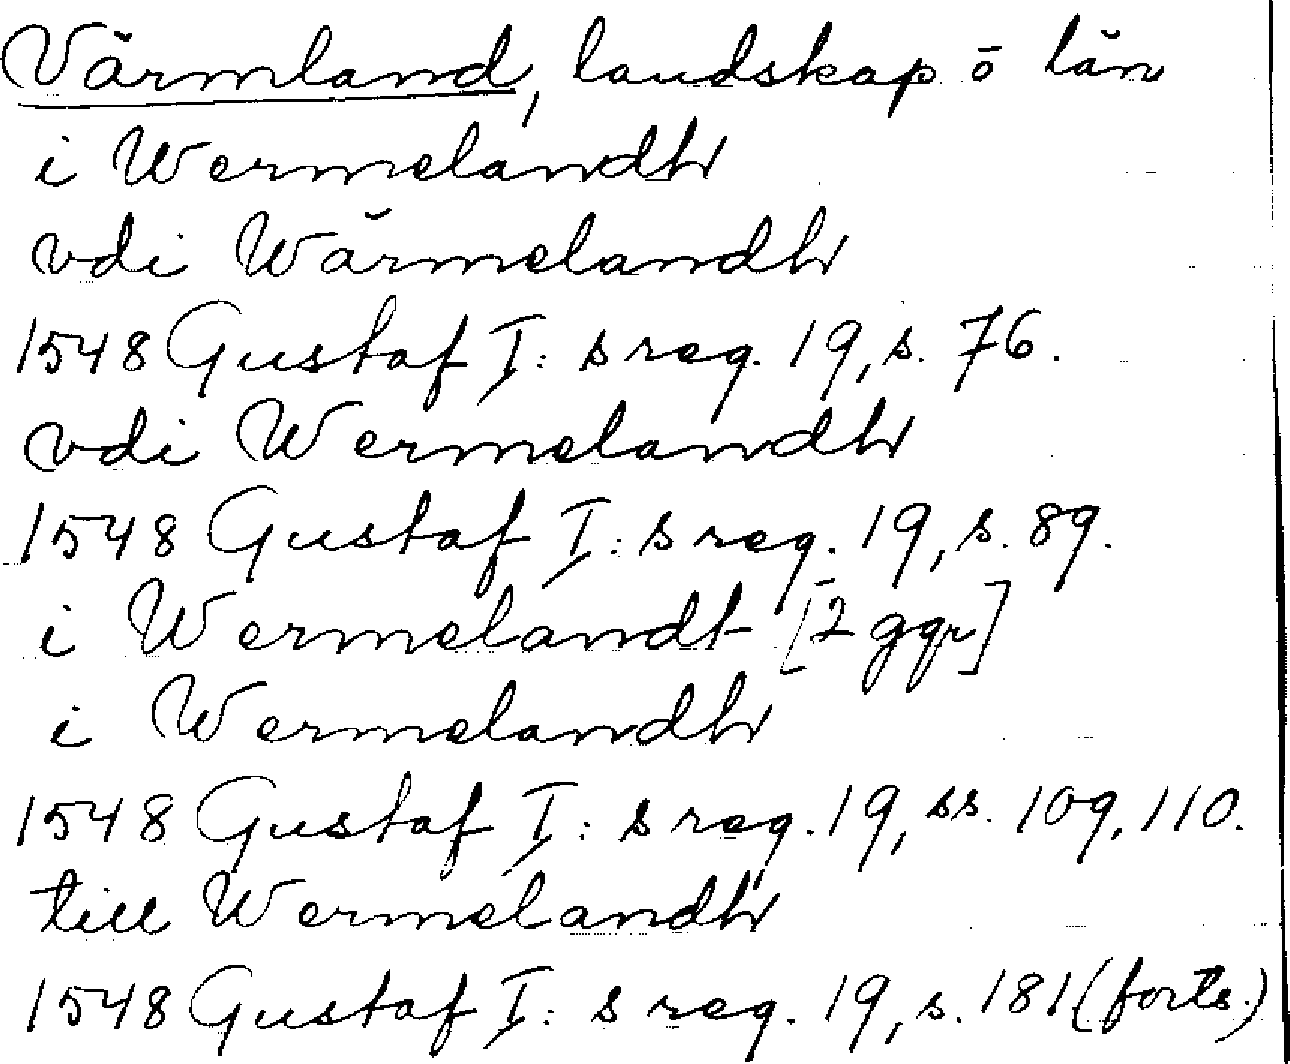 Värmland, landskap o län
i Wermelandh
vdi Wärmelandh
1548 Gustaf I:s reg. 19, s. 76.
vdi Wermelandh
1548 Gustaf I:s reg. 19, s. 89.
i Wermelandt [2 ggr]
i Wermelandh
1548 Gustaf I:s reg. 19, ss. 109, 110.
till Wermelandh
1548 Gustaf I:s reg. 19, s. 181 (forts.)